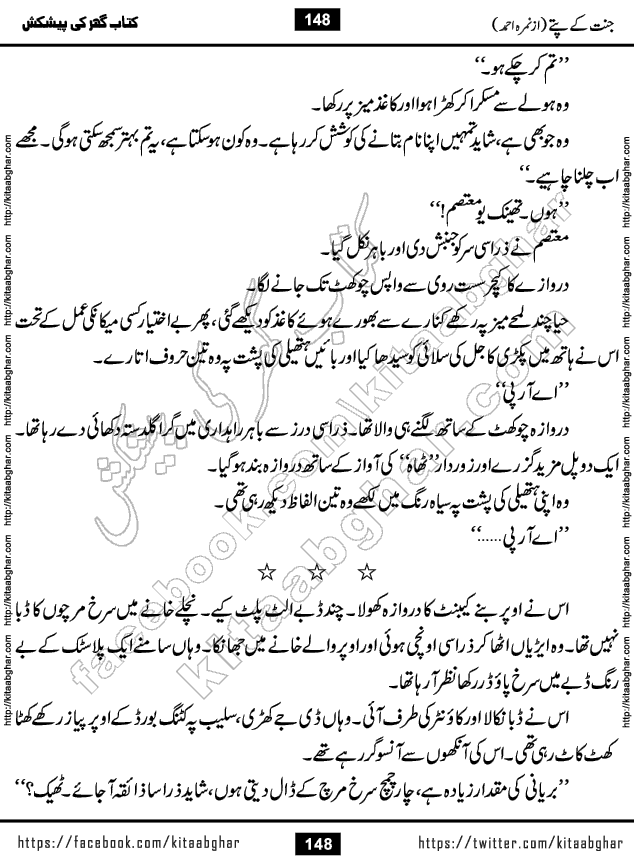 کتاب گھر کی پیشکش
148
جنت کے پتے (از نمرہ احمد)
’’تم کر چکے ہو۔‘‘
وہ ہولے سے مسکرا کر کھڑا ہوا اور کاغذ میز پر رکھا۔
وہ جو بھی ہے، شاید تمہیں اپنا نام بتانے کی کوشش کر رہا ہے۔ وہ کون ہو سکتا ہے، یہ تم بہتر سمجھ سکتی ہو گی۔ مجھے
اب چلنا چاہیے۔‘‘
’’ہوں۔ تھینک یو معتصم!‘‘
معتصم نے ذرا سی سر کو جنبش دی اور باہر نکل گیا۔
دروازے کا کیچر سست روی سے واپس چوکھٹ تک جانے لگا۔
حیا چند لمحے میز پہ رکھے کنارے سے بھورے ہوئے کاغذ کو دیکھے گئی، پھر بے اختیار کسی میکانکی عمل کے تحت
اس نے ہاتھ میں پکڑی کاجل کی سلائی کو سیدھا کیا اور بائیں ہتھیلی کی پشت پہ وہ تین حروف اتارے۔
’’اے آر پی‘‘
دروازہ چوکھٹ کے ساتھ لگنے ہی والا تھا۔ ذرا سی درز سے باہر راہداری میں گرا گلدستہ دکھائی دے رہا تھا۔
ایک دو پل مزید گزرے اور زور دار ’’ٹھاہ‘‘ کی آواز کے ساتھ دروازہ بند ہو گیا۔
وہ اپنی ہتھیلی کی پشت پہ سیاہ رنگ میں لکھے وہ تین الفاظ دیکھ رہی تھی۔
’’اے آر پی......‘‘
☆ ☆ ☆
اس نے اوپر بنے کیبنٹ کا دروازہ کھولا۔ چند ڈبے الٹ پلٹ کیے۔ نچلے خانے میں سرخ مرچوں کا ڈبا
نہیں تھا۔ وہ ایڑیاں اٹھا کر ذرا سی اونچی ہوئی اور اوپر والے خانے میں جھانکا۔ وہاں سامنے ایک پلاسٹک کے بے
رنگ ڈبے میں سرخ پاؤڈر رکھا نظر آ رہا تھا۔
اس نے ڈبا نکالا اور کاؤنٹر کی طرف آئی۔ وہاں ڈی جے کھڑی، سلیب پہ کٹنگ بورڈ کے اوپر پیاز رکھے کھٹ
کھٹ کاٹ رہی تھی۔ اس کی آنکھوں سے آنسو گر رہے تھے۔
’’بریانی کی مقدار زیادہ ہے، چار چمچ سرخ مرچ کے ڈال دیتی ہوں، شاید ذرا سا ذائقہ آ جائے۔ ٹھیک؟‘‘
https://facebook.com/kitaabghar
148
https://twitter.com/kitaabghar
http://kitaabghar.com http://kitaabghar.com http://kitaabghar.com http://kitaabghar.com http://kitaabghar.com http://kitaabghar.com
http://kitaabghar.com http://kitaabghar.com http://kitaabghar.com http://kitaabghar.com http://kitaabghar.com http://kitaabghar.com
کتاب گھر کی پیشکش
facebook.com/kitaabghar
kitaabghar.com